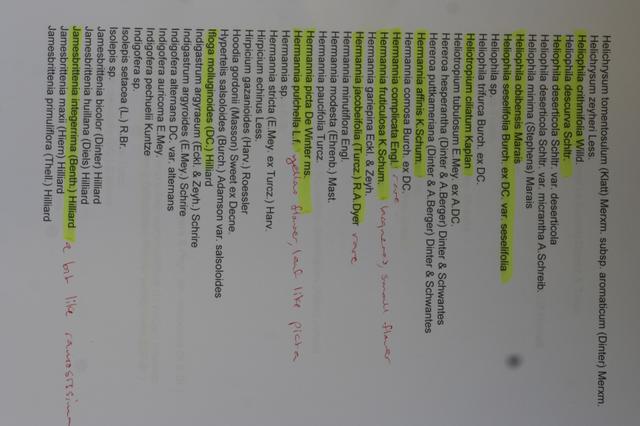 Helichrysum tomentosulum (Klatt) Merxm. subsp. aromaticum (Dinter) Merxm.
Helichrysum zeyheri Less.
Heliophila crithmifolia Willd.
Heliophila descurva Schltr.
Heliophila deserticola Schltr. var. deserticola
Heliophila deserticola Schltr. var. micrantha A.Schreib.
Heliophila minima (Stephens) Marais
Heliophila obibensis Marais
Heliophila seselifolia Burch. ex DC. var. seselifolia
Heliophila sp
Heliophila trifurca Burch. ex DC.
Heliotropium ciliatum Kaplan
Heliotropium tubulosum E.Mey. ex A.DC.
Hereroa hesperantha (Dinter & A.Berger) Dinter & Schwantes
Hereroa puttkameriana (Dinter & A.Berger) Dinter & Schwantes
Hermannia affinis K.Schum.
Hermannia comosa Burch. ex DC.
Hermannia complicata Engl. rare
Hermannia fruticulosa K.Schum. small flower
Hermannia gariepina Eckl. & Zeyh.
Hermannia jacobeifolia (Turcz.) R.A.Dyer rare
Hermannia minutiflora Engl.
Hermannia modesta (Ehrenb.) Mast.
Hermannia paucifolia Turcz.
Hermannia picta De Winter ms.
Hermannia pulchella L.f. yellow flower, leaf like picta
Hermannia sp.
Hermannia stricta (E.Mey. ex Turcz.) Harv.
Hirpicium echinus Less.
Hirpicium gazanoides (Harv.) Roessler
Hoodia gordonii (Masson) Sweet ex Decne.
Hypertelis salsoloides (Burch.) Adamson var. salsoloides
Ifloga molluginoides (DC.) Hilliard
Indigastrum argyraeum (Eckl. & Zeyh.) Schrire
Indigastrum argyroides (E.Mey.) Schrire
Indigofera alternans DC. var. alternans
Indigofera auricoma E.Mey.
Indigofera pechuelii Kuntze
Indigofera sp.
Isolepis setacea (L.) R.Br.
Isolepis sp.
Jamesbrittenia bicolor (Dinter) Hilliard
Jamesbrittenia huillana (Diels) Hilliard
Jamesbrittenia integerrima (Benth.) Hilliard a bit like ramosissima
Jamesbrittenia maxii (Hiern) Hilliard
Jamesbrittenia primuliflora (Thell.) Hilliard